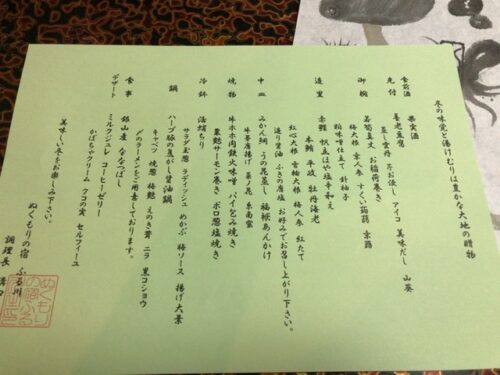 冬の味覚と湯けむりは豊かな大地の贈物
食前酒 果実酒
先付 養老豆腐 芥お浸し アイコ 美味だし 山葵
蒸し雲丹
御椀 若筍真丈 お稲荷巻き
梅大根 京人参 すくい蒟蒻 京葱
粕味噌仕立て 針柚子
造里 赤鰈 帆立はや塩辛和え
本鮪 平政 牡丹海老
紅心大根 青軸大根 梅人参 紅たて
造り醤油 ふきの唐塩 お好みでお召し上がり下さい。
中皿 みかん鯛 うの花蒸し 福袋あんかけ
牛蒡唐揚げ 菜ノ花 糸南蛮
焼物 牛ホホ肉鉄火味噌 パイ包み焼き
巣籠サーモン巻き ポロ葱塩焼き
冷鉢 活蛸ちり
サラダ玉葱 ラディッシュ めかぶ 梅ソース 揚げ大葉
鍋 ハーブ豚の焦がし醤油鍋
キャベツ 焼葱 梅麩 えのき茸 ニラ 黒コショウ
〆のラーメンをご用意しております。
食事 銀山産 ななつぼし
デザート ミルクジュレ コーヒーゼリー
かぼちゃクリーム クコの実 セルフィーユ
美味しい冬をお楽しみ下さい。
ぬくもりの宿 ふる川
調理長